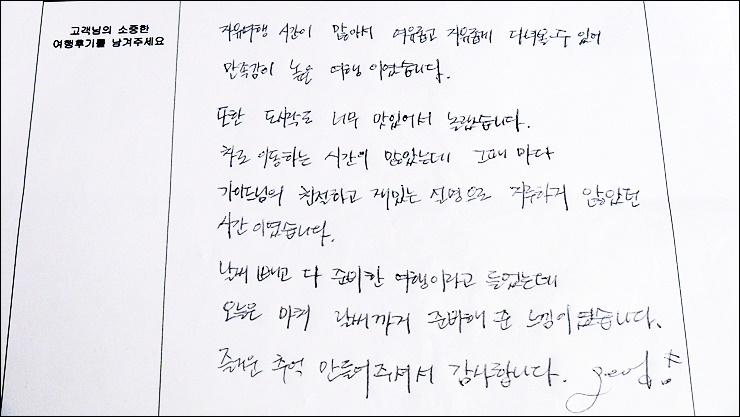 고객님의 소중한
여행후기를 남겨주세요
자유여행 시간이 많아서 여유롭고 자유롭게 다녀올 수 있어
만족감이 높은 여행 이였습니다.
또한 도시락도 너무 맛있어서 놀랐습니다.
차로 이동하는 시간이 많았는데 그때 마다
가이드님의 친절하고 재밌는 설명으로 지루하지 않았던
시간 이였습니다.
날씨 빼고 다 준비한 여행이라고 들었는데
오늘은 마켜 날씨까지 준비해 준 느낌이였습니다.
즐거운 추억 만들어주셔서 감사합니다.